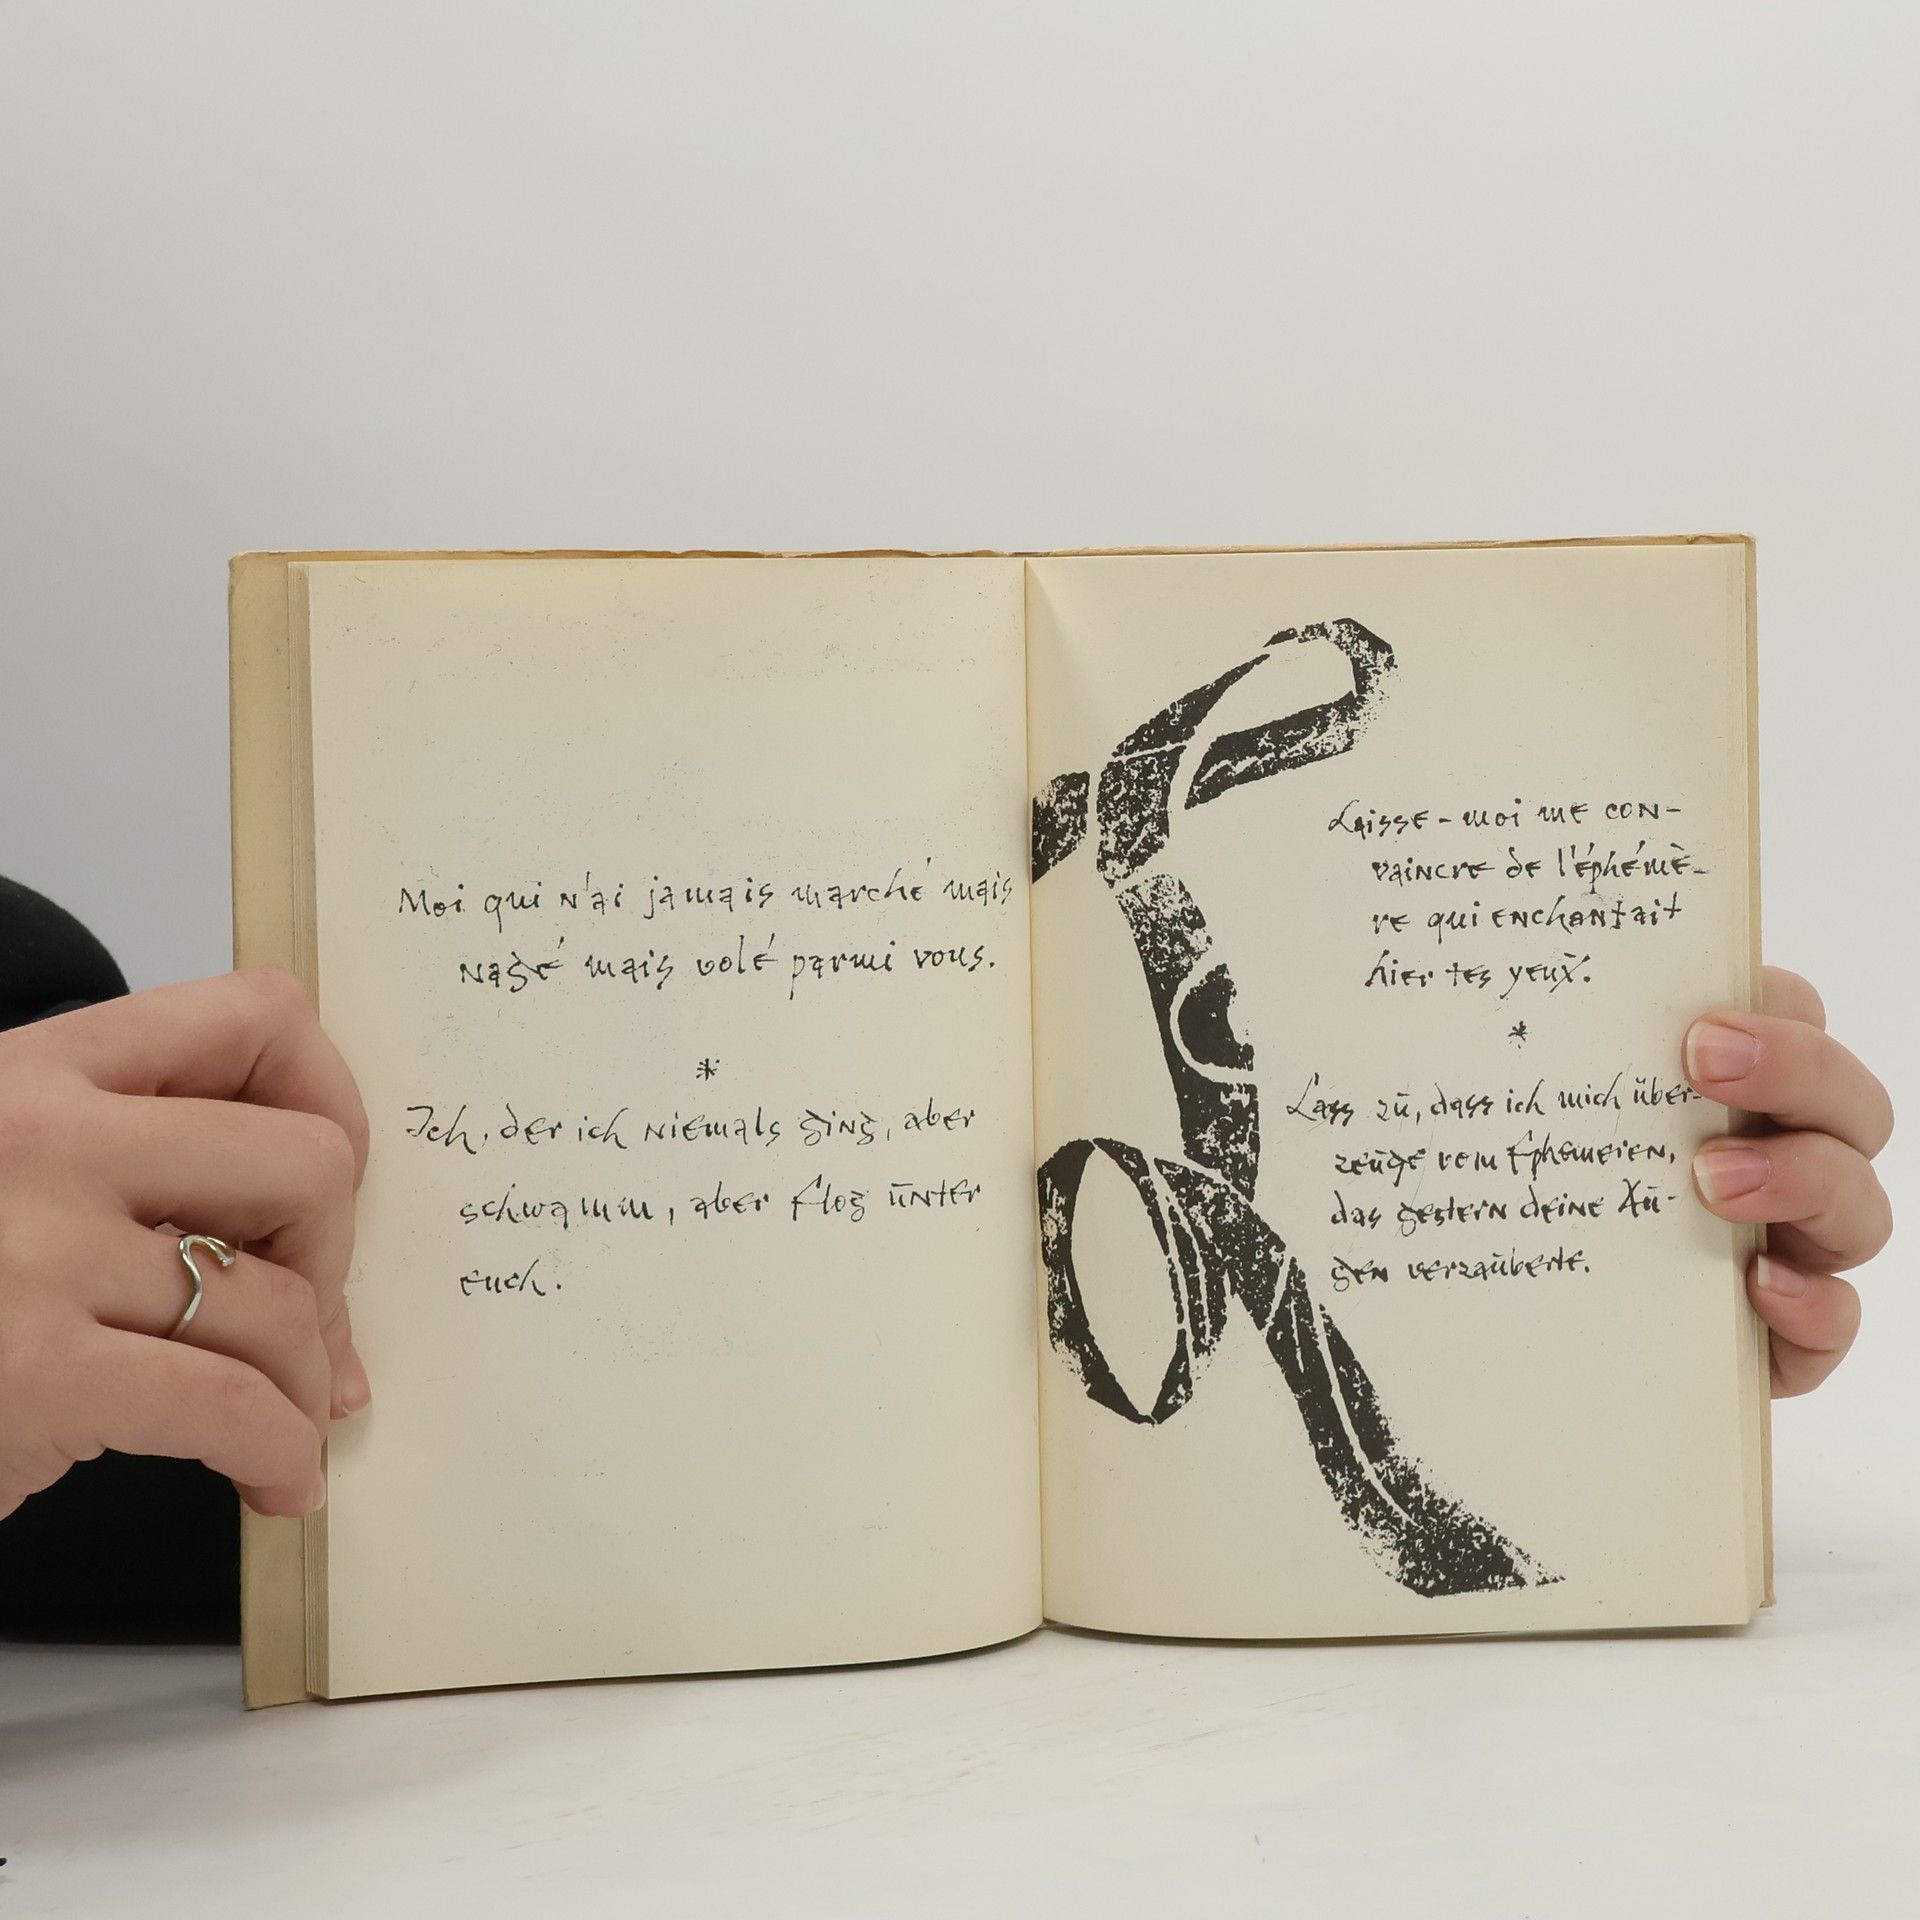 Moi qui n'ai jamais marché mais
nagé mais volé parmi vous.
*
Ich, der ich niemals ging, aber
schwamm, aber flog unter
euch.
Laisse-moi me con-
vaincre de l'éphémè-
re qui enchantait
hier tes yeux.
*
Lass zu, dass ich mich über-
zeuge vom Ephemeren,
das gestern deine Au-
gen verzauberte.